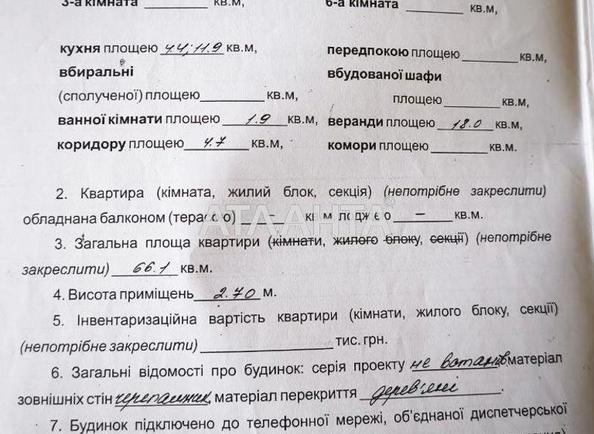 3-а кімната кв.м, 6-а кімната кв.м,
кухня площею 4.4; 11.9 кв.м, передпокою площею кв.м,
вбиральні вбудованої шафи
(сполученої) площею кв.м, площею кв.м,
ванної кімнати площею 1.9 кв.м, веранди площею 18.0 кв.м,
коридору площею 4.7 кв.м, комори площею кв.м.
2. Квартира (кімната, жилий блок, секція) (непотрібне закреслити)
обладнана балконом (терасою) – кв.м, лоджією – кв.м.
АТЛАНТА
3. Загальна площа квартири (кімнати, жилого блоку, секції) (непотрібне
закреслити) 66.1 кв.м.
4. Висота приміщень 2.70 м.
5. Інвентаризаційна вартість квартири (кімнати, жилого блоку, секції)
(непотрібне закреслити) тис. грн.
6. Загальні відомості про будинок: серія проекту не матеріал
зовнішніх стін черепашник, матеріал перекриття дерев'яні
7. Будинок підключено до телефонної мережі, об'єднаної диспетчерської